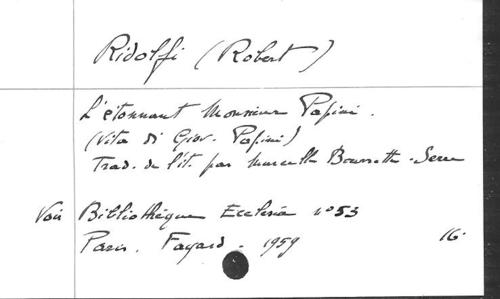 Ridolfi (Robert)
L'étonnant Monsieur Papini.
(Vita di Giov. Papini)
Trad. de l'it. par Marcelle Bourrette-Serre
Voir Bibliothèque Ecclesia n°53
Paris. Fayard. 1959 16.